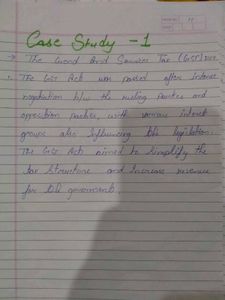 Case Study - 1
→ The Good And Services Tax (GST)
The GST Act was passed after intense
negotiation b/w the ruling parties and
opposition parties, with various interest
groups also influencing the legislation.
The GST Act aimed to simplify the
tax structure and Increase revenue
for the government.